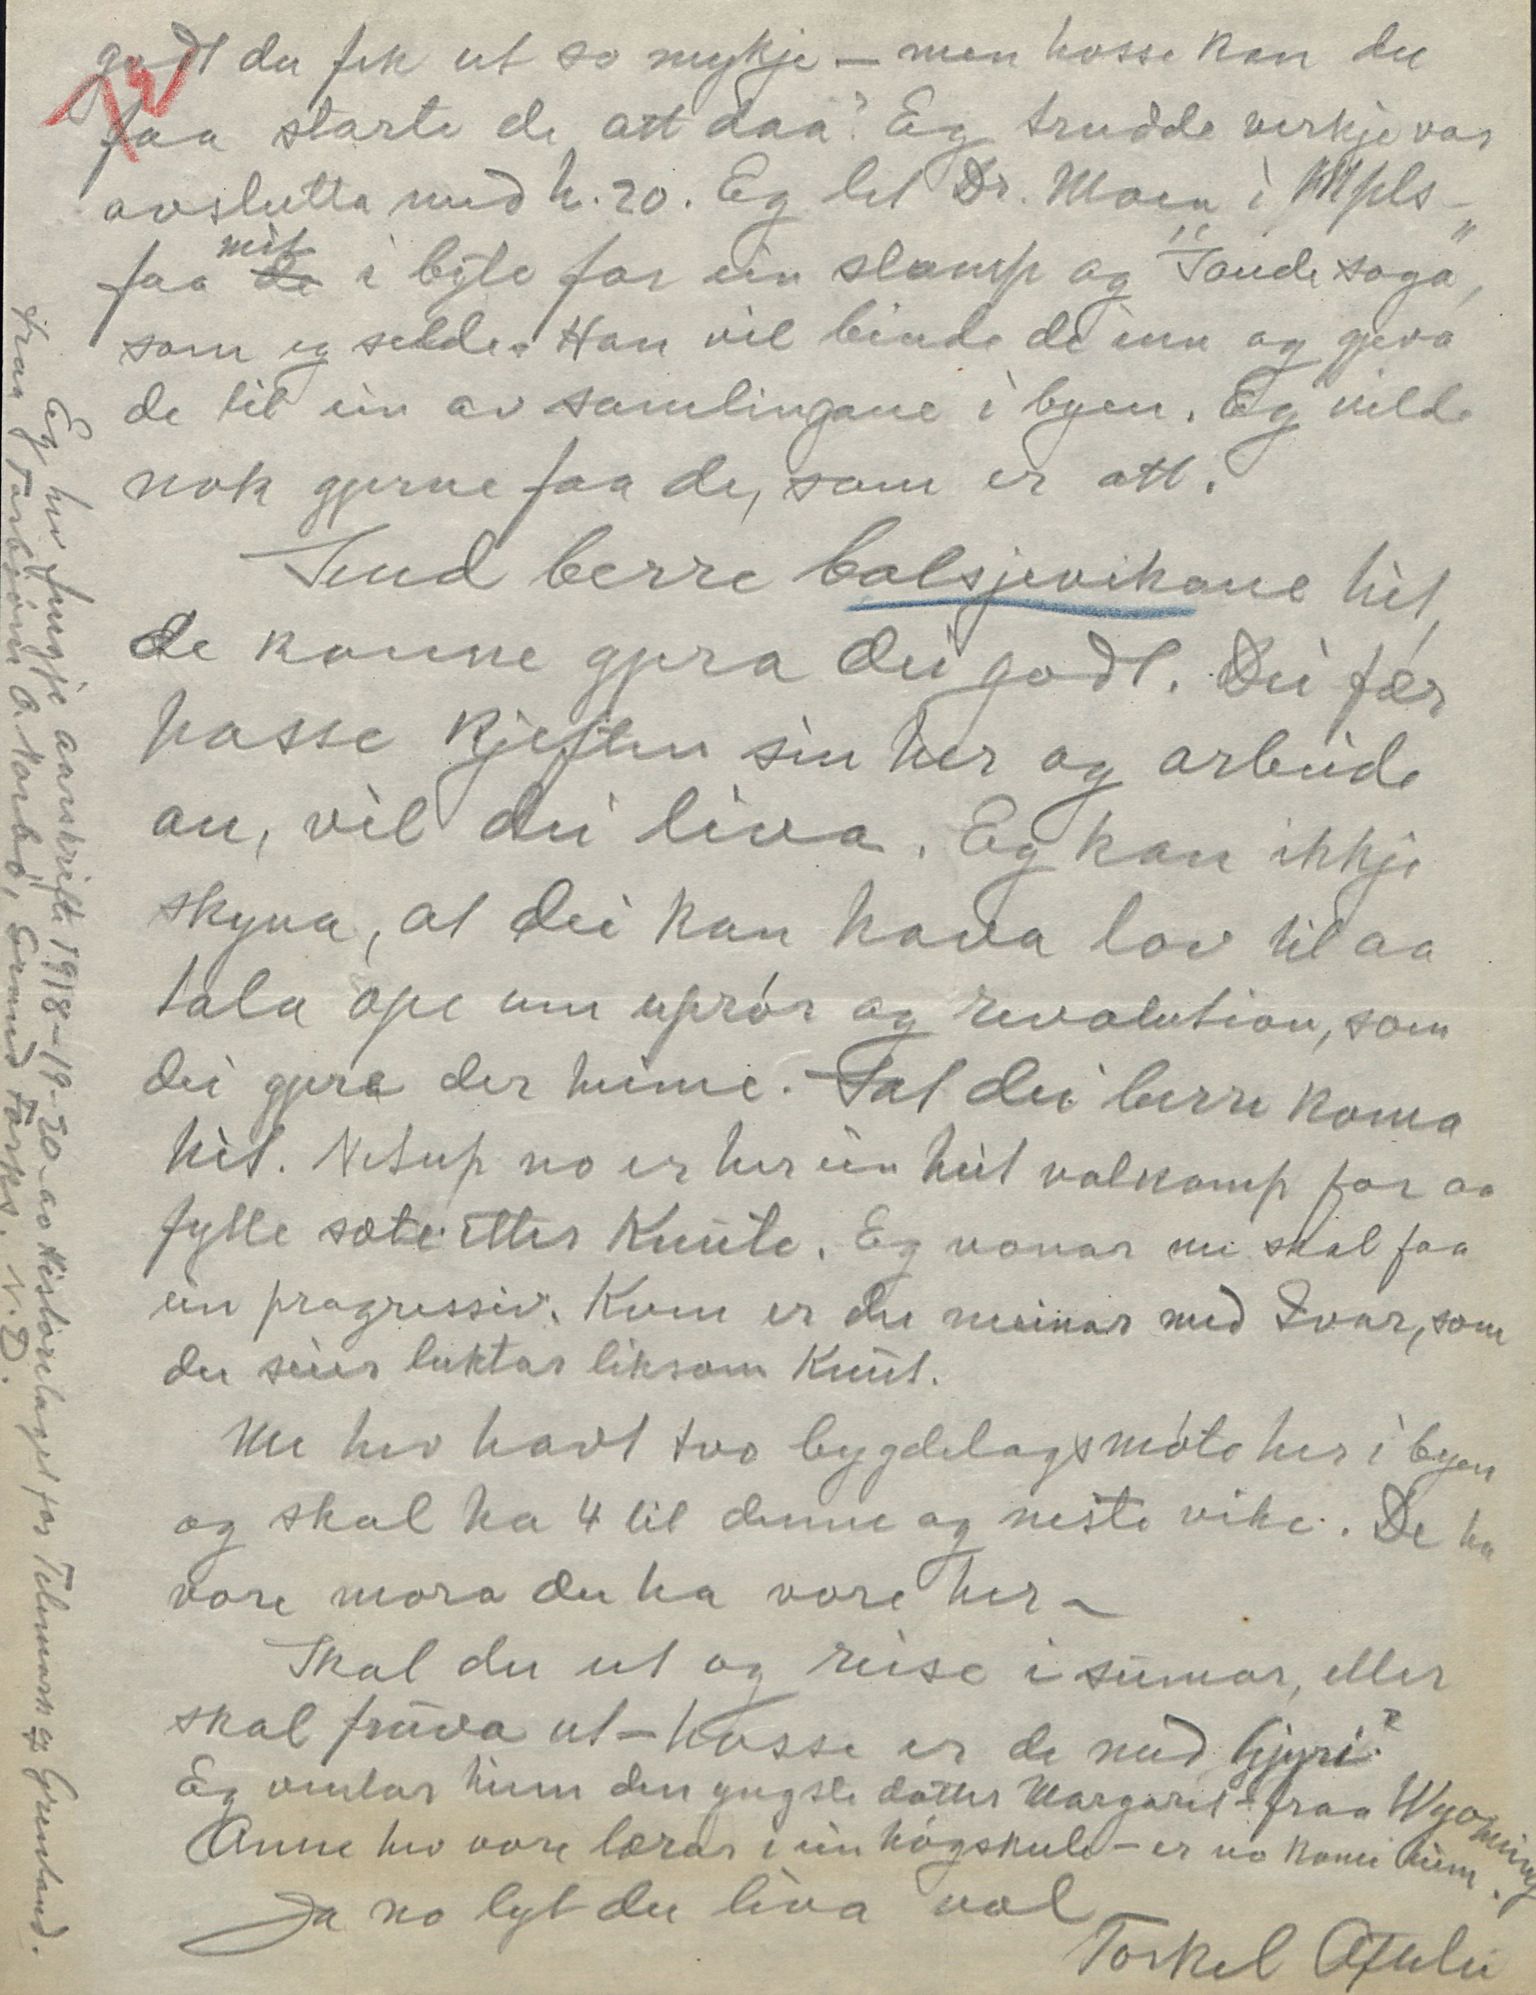 godt du fek ut so mykje – men hosse kan du
faa starte de att daa? Eg trudde verkje var
avslutta med h. 20. Eg let Dr. Moen i Mpls –
faa mit i byte for ein slump og "Sande soga",
som eg selde. Han vil binde de inn og gjeva
de til ein av samlingane i byen. Eg vilde
nok gjerne faa de, som er att.
Send berre bolsjevikane hit,
de kunne gjera dei godt. Dei fær
passe kjeften sin her og arbeide
an, vil dei liva. Eg kan ikkje
skyna, at dei kan hava lov til aa
tala ope um uprör og revolution, som
dei gjera der heime. Lat dei berre koma
hit. Netup no er her ein heit valkamp for aa
fylle sæte etter Knute. Eg vonar me skal faa
ein progressiv. Kven er du meinar med Ivar, som
du seier luktar liksom Knut.
Me hev havt tvo bygdelagsmöte her i byen
og skal ha 4 til denne og neste vike. De ha
vore mora du ha vore her –
Skal du ut og reise i sumar, eller
skal fruva ut – hosse er de med Gjyri?
Eg ventar heim den yngste dotter Margaret – fraa Wyoming
Anne hev vore lærar i ein högskule – er no komi heim.
Ja no lyt du liva vel
Torkel Oftelie
Eg hev fengje aarsskrifte 1918–19–20 av Historielaget for Telemark og Grenland.
fraa Torbjörn A. Norbö, Grand Forks, N. D.